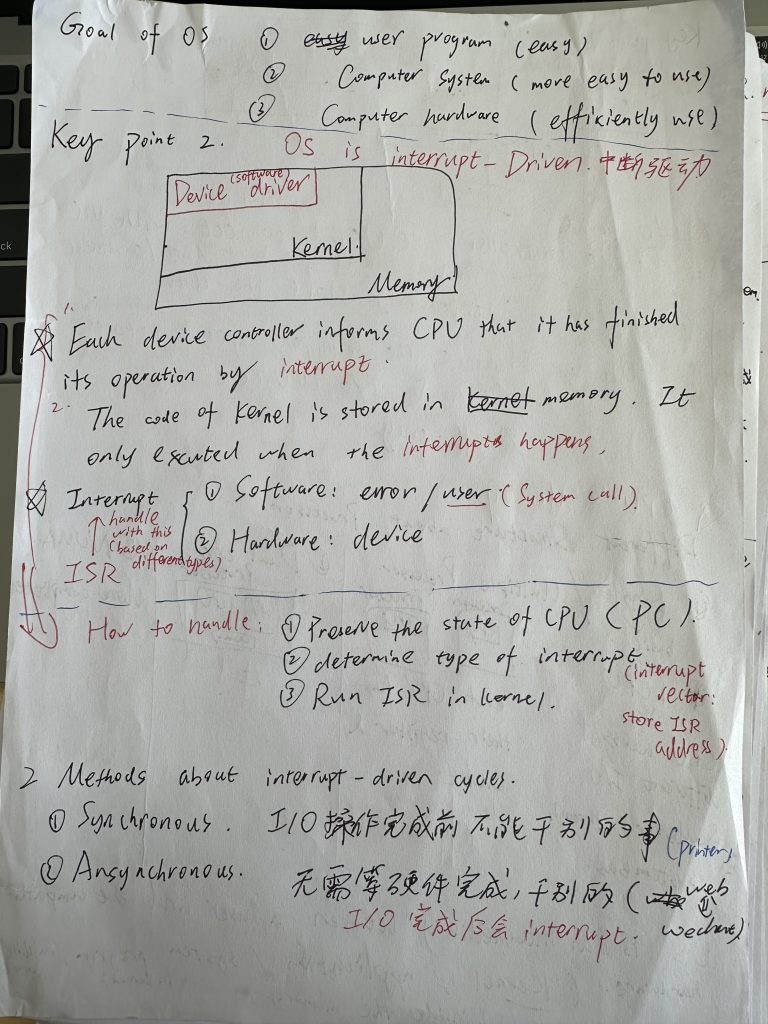 Goal of OS ① easy user program (easy)
② Computer system (more easy to use)
③ Computer hardware (effikiently use)
Key point 2. OS is interrupt-Driven. 中断驱动
Device (software) driver
Kernel.
Memory.
1.
Each device controller informs CPU that it has finished
its operation by interrupt.
2. The code of Kernel is stored in kernel memory. It
only excuted when the interrupts happens,
Interrupt ① Software: error / user (System call).
handle with this (based on different types).
② Hardware: device
ISR
How to handle: ① Preserve the state of CPU (PC).
② determine type of interrupt
③ Run ISR in kernel.
(interrupt
vector:
store ISR
address).
2 Methods about interrupt-driven cycles.
① Synchronous. I/O 操作完成前 不能干别的事 (printer)
② Ansynchronous. 无需等硬件完成, 干别的 (web
I/O 完成后会 interrupt. wechat).
ck